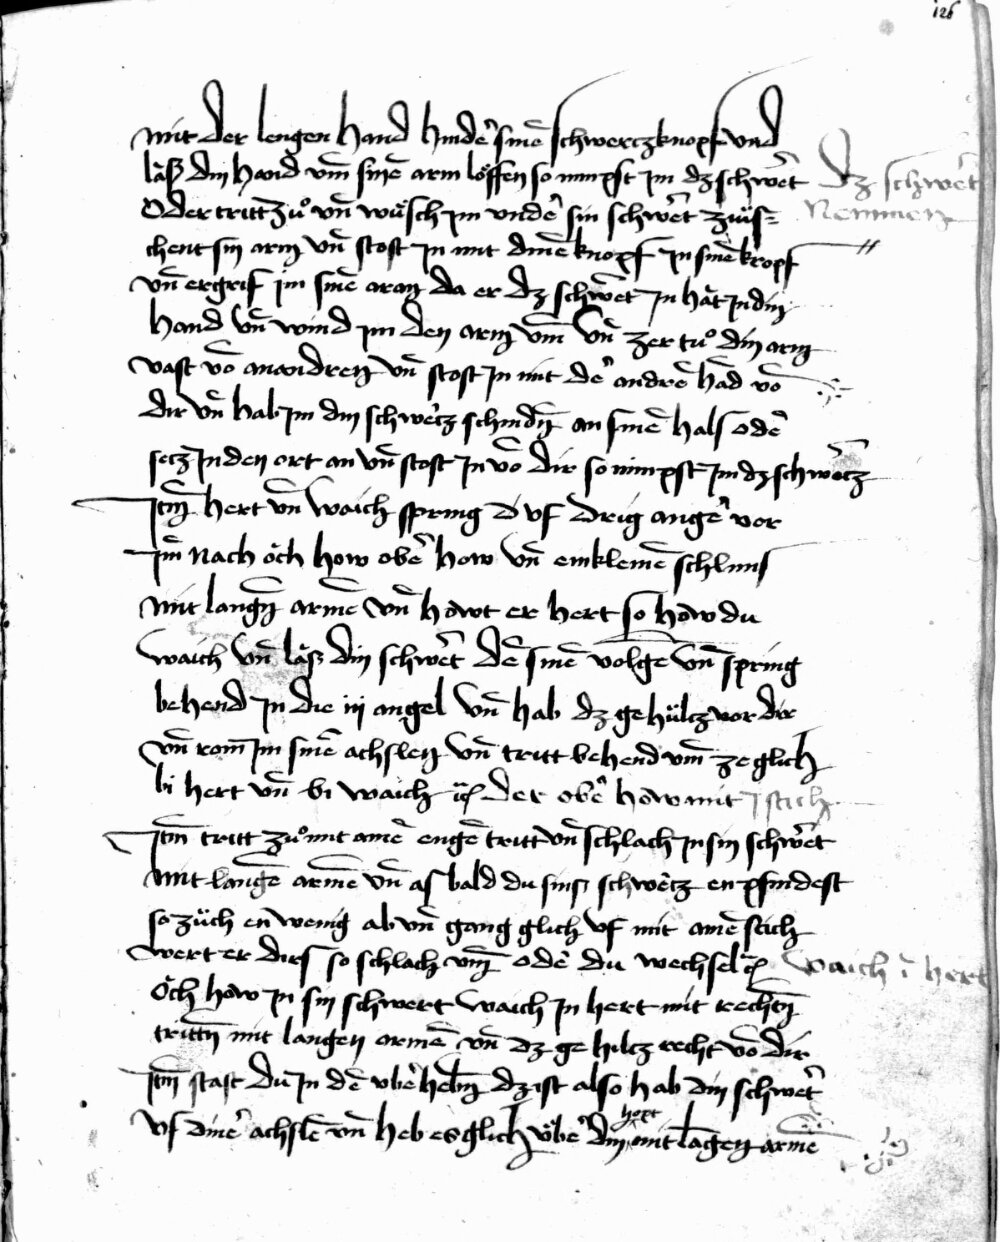 126
mit der lengen hand hinder sinē schwerczknopf vnd
läß din hand vm̄ sinē arm löffen so nimpst im dz schwe᷑t
dz schwe᷑t
Nemmen
Oder tritt zuͦ vn̄ wüsch im vnde᷑ sin schwe᷑t zwüs=
chent sin arm vn̄ stost in mit dinē knopf in sinē kropf
vn̄ ergrif im sinē aram da er dz schwe᷑t in hät in din
hand vn̄ wind im den arm vm̄ vn̄ zer tuͦ din arm
vast vō anandren vn̄ stost in mit de᷑ andrē hād vō
dir vn̄ hab im din schwe᷑cz schnidn̄ an sinē hals ode᷑
secz in den ort an vn̄ stost in vō dir so nimpst im dz schwe᷑cz
Itm̄ hert vn̄ waich spring d vf drig ange᷑ vor
Im̄ nach öch how obe᷑ how vn̄ ein kleinē schluns
mit langn̄ armē vn̄ howt er hert so how du
waich vn̄ läß din schwe᷑t dē sinē volge vn̄ spring
behend in die iij angel vn̄ hab dz gehülcz vor dir
vn̄ rom̄ im sinē achslen vn̄ tritt behend vm̄ ze glich
bi hert vn̄ bi waich der obe᷑ how mit j stich
Itm̄ tritt zuͦ mit ainē engē tritt vn̄ schlach in sin schwe᷑t
mit langē armē vn̄ as bald du sinß schwe᷑cz enpfindest
so züch en wenig ab vn̄ gang glich vf mit ainē stich
wert er dirs so schlach vm̄ ode᷑ du wechsel
waich ī hert
Öch how in sin schwert waich in hert mit rechtn̄
trittn̄ mit langen armē vn̄ dz gehilcz recht vō dir
Itm̄ stast du in dē vbe᷑hebn̄ dz ist also hab din schwe᷑t
vf dine᷑ achslē vn̄ heb es glich vͤbe᷑ din hopt mit lāgen armē